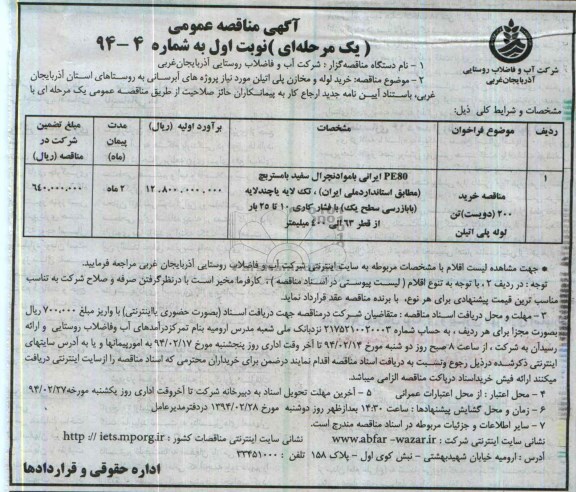 آگهی مناقصه عمومی
( یک مرحله‌ای )نوبت اول به شماره ۴ -۹۴
شرکت آب و فاضلاب روستایی
آذربایجان‌غربی
۱ – نام دستگاه مناقصه‌گزار : شرکت آب و فاضلاب روستایی آذربایجان‌غربی
۲ – موضوع مناقصه: خرید لوله و مخازن پلی اتیلن مورد نیاز پروژه های آبرسانی به روستاهای استان آذربایجان
غربی، باستناد آیین نامه جدید ارجاع کار به پیمانکاران حائز صلاحیت از طریق مناقصه عمومی یک مرحله ای با
مشخصات و شرایط کلی ذیل:
ردیف
موضوع فراخوان
مشخصات
برآورد اولیه (ریال)
مدت پیمان (ماه)
مبلغ تضمین شرکت در مناقصه (ریال)
۱
مناقصه خرید
۲۰۰ (دویست)تن
لوله پلی اتیلن
PE80 ایرانی باموادنچرال سفید بامستربچ
(مطابق استانداردملی ایران) ، تک لایه یاچندلایه
(بابازرسی سطح یک) بافشار کاری ۱۰ تا ۲۵ بار
از قطر ۶۳ الی ۴۰۰ میلیمتر
۱۲،۸۰۰،۰۰۰،۰۰۰
۲ ماه
۶۴۰،۰۰۰،۰۰۰
جهت مشاهده لیست اقلام با مشخصات مربوطه به سایت اینترنتی شرکت آب و فاضلاب روستایی آذربایجان غربی مراجعه فرمایید.
توجه : در ردیف ۲ ، با توجه به تنوع اقلام ( لیست پیوستی در اسناد مناقصه )؛ کارفرما مخیر است با درنظرگرفتن صرفه و صلاح شرکت به تناسب
مناسب ترین قیمت پیشنهادی برای هر نوع، با برنده مناقصه عقد قرارداد نماید.
۳ – مهلت و محل دریافت اسناد مناقصه : متقاضیان شرکت درمناقصه جهت دریافت اسناد (بصورت حضوری یااینترنتی) با واریز مبلغ ۷۰۰،۰۰۰ ریال
بصورت مجزا برای هر ردیف ، به حساب شماره ۲۱۷۵۲۱۰۰۲۰۰۳ نزدبانک ملی شعبه مدرس ارومیه بنام تمرکزدرآمدهای آب وفاضلاب روستایی و ارائه
رسیدآن به شرکت ، از ساعت ۸ صبح روز دو شنبه مورخ ۹۴/۰۲/۱۴ تا آخر وقت اداری روز پنجشنبه مورخ ۹۴/۰۲/۱۷ به امورپیمانها و یا به آدرس سایتهای
اینترنتی ذکرشده درذیل رجوع ونسبت به دریافت اسناد مناقصه اقدام نمایند درضمن برای خریداران محترمی که اسناد مناقصه را ازسایت اینترنتی دریافت
میکنند ارائه فیش خریداسناد دریافت مناقصه الزامی میباشد.
۴ – محل اعتبار : از محل اعتبارات عمرانی ۵ – آخرین مهلت تحویل اسناد به دبیرخانه شرکت تا آخروقت اداری روز یکشنبه مورخه۹۴/۰۲/۲۷
۶ – زمان و محل گشایش پیشنهادها : ساعت ۱۴:۳۰ بعدازظهر روز دوشنبه مورخ ۱۳۹۴/۰۲/۲۸ دردفترمدیرعامل
۷ – سایر اطلاعات و جزئیات مربوطه در اسناد مناقصه مندرج است.
نشانی سایت اینترنتی شرکت : www.abfar -wazar.ir نشانی سایت اینترنتی مناقصات کشور : http // iets.mporg.ir
آدرس : ارومیه خیابان شهیدبهشتی – نبش کوی اول – پلاک ۱۵۸ تلفن : ۳۳۴۵۱۰۰۰
اداره حقوقی و قراردادها